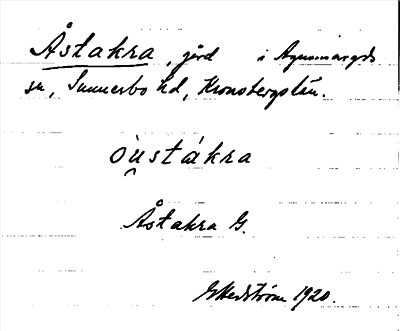 Åstakra, gård i Agunnaryds
sn, Sunnerbo hd, Kronobergs län.
òu̯stákra
Åstakra G.
G Hedström 1920.